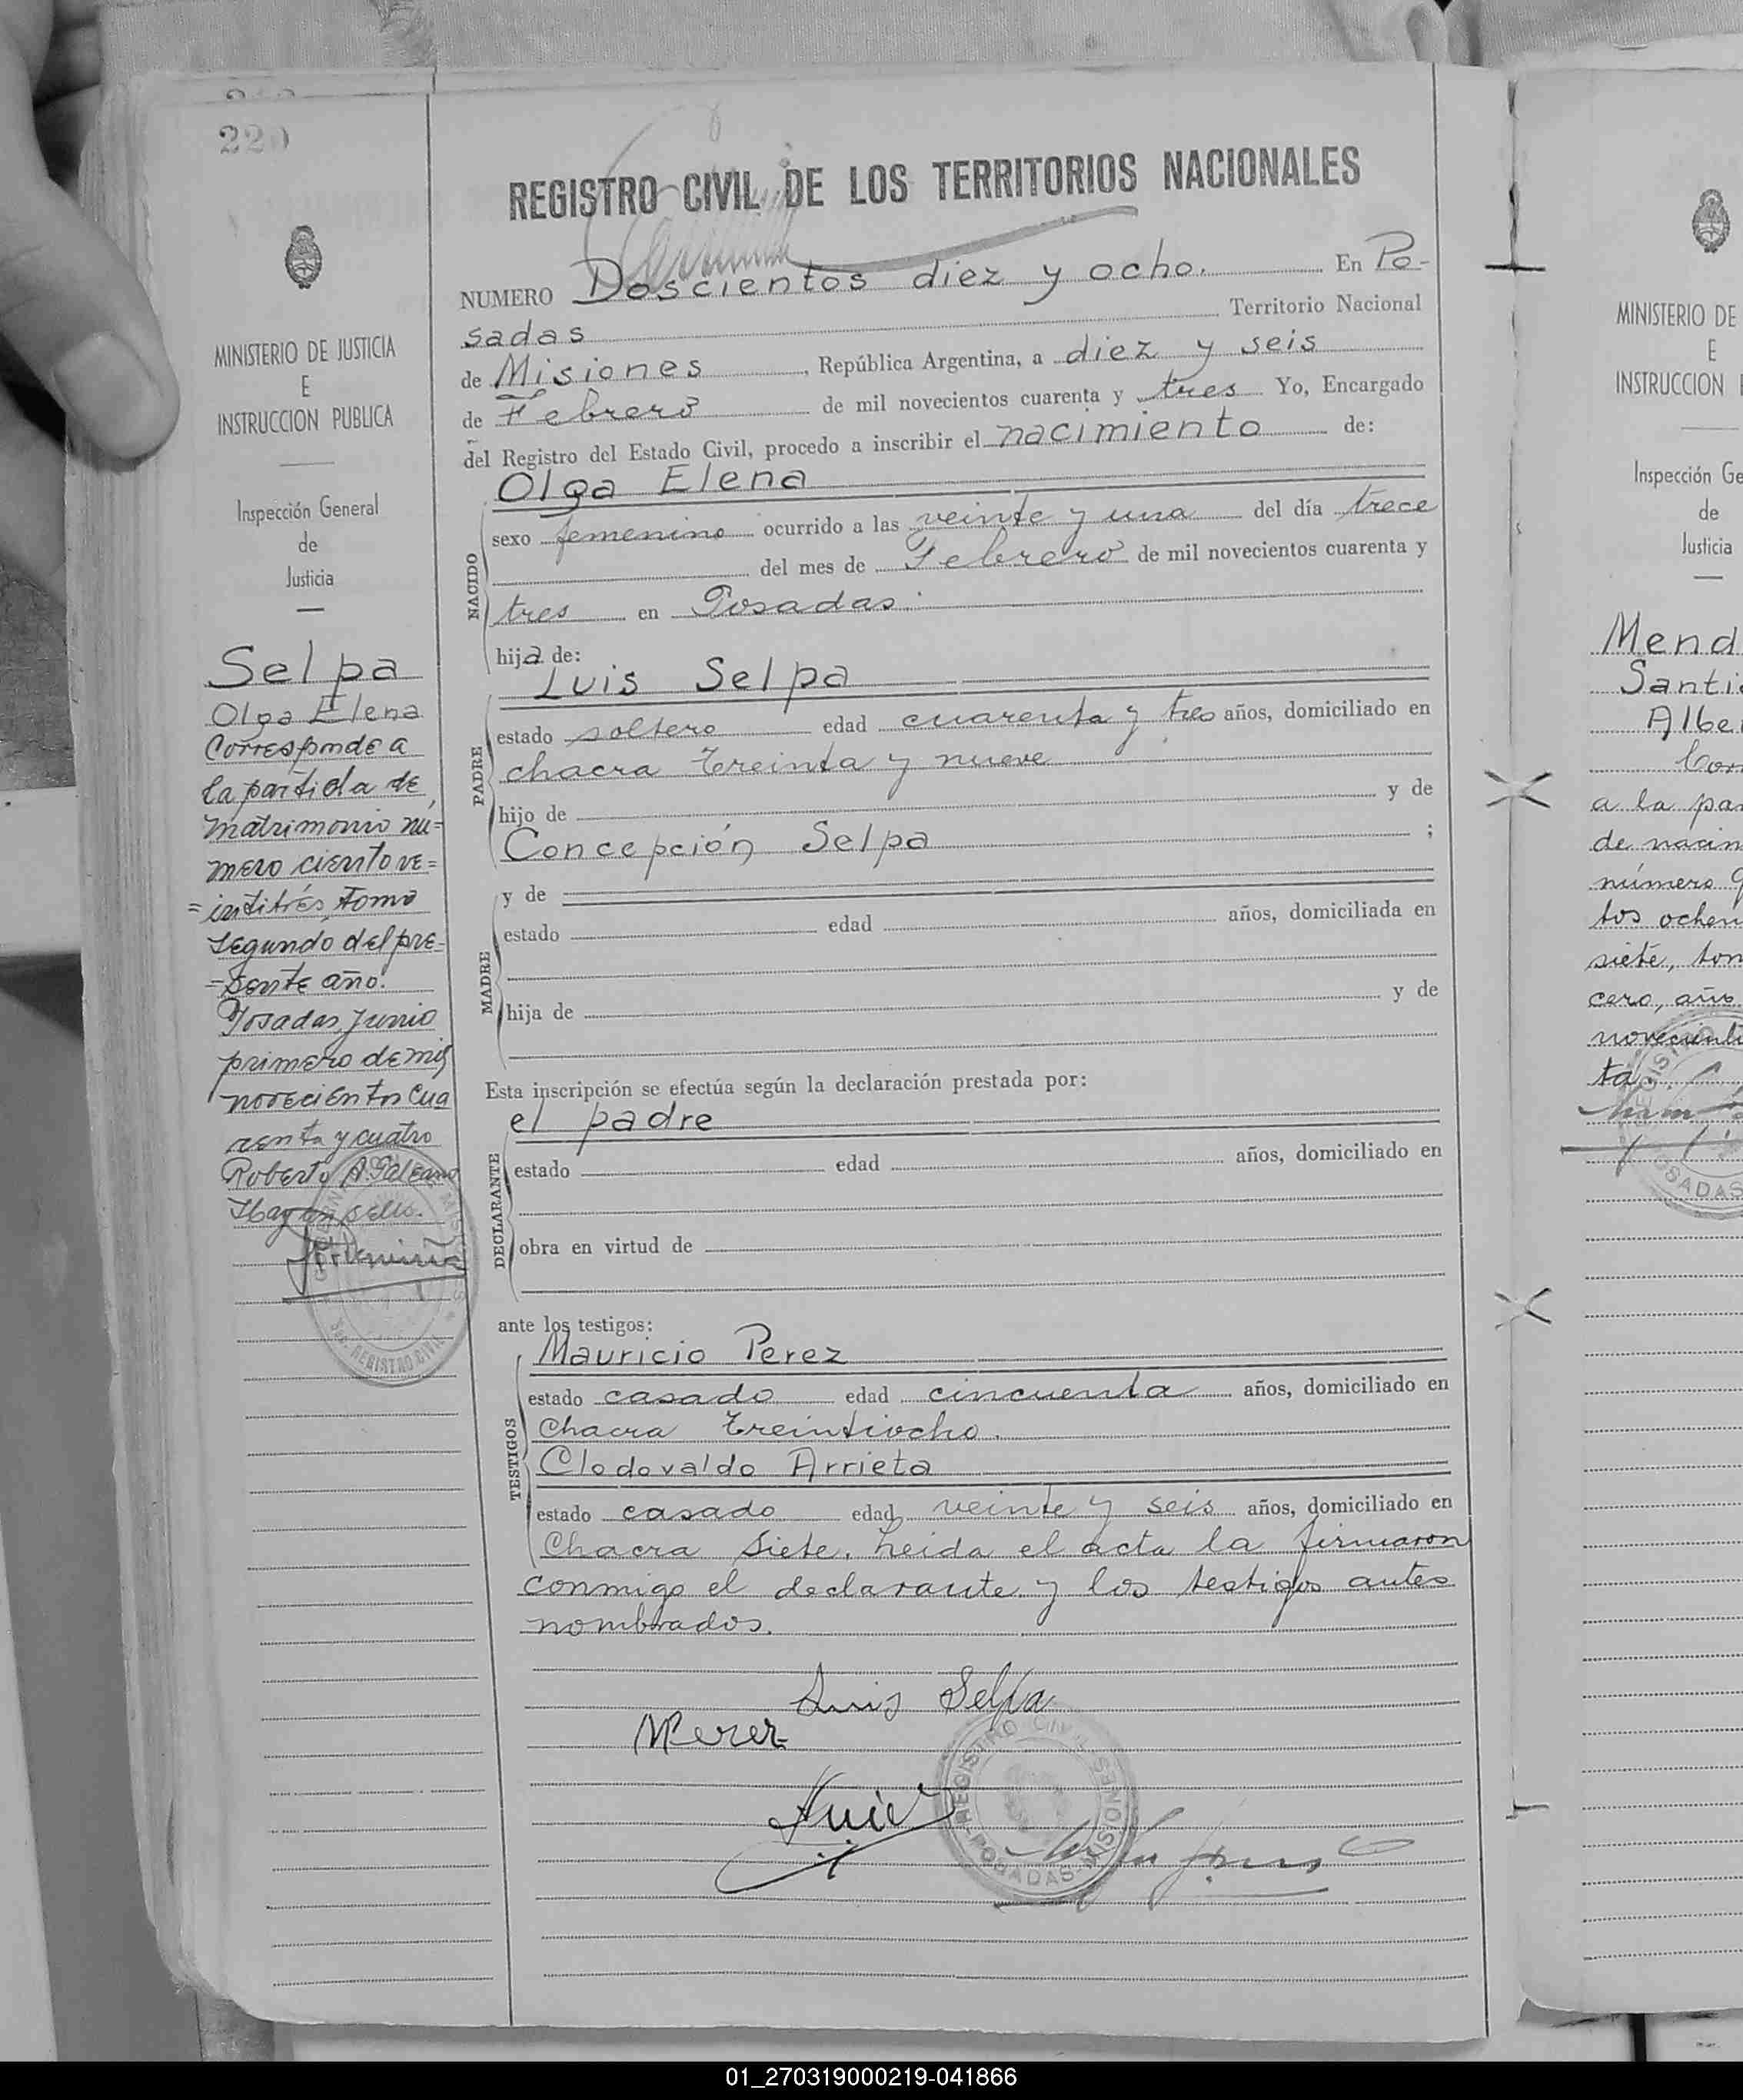 220
MINISTERIO DE JUSTICIA
E
INSTRUCCION PUBLICA
Inspección General
de
Justicia
Selpa
Olga Elena
Corresponde a
la partida de
matrimonio nu=
mero ciento ve=
=intitrés, tomo
segundo del pre-
=sente año.
Posadas, Junio
primero de mil
novecientos cua
renta y cuatro
Roberto A. Galeano
Hay un sello.
REGISTRO CIVIL DE LOS TERRITORIOS NACIONALES
NUMERO Doscientos diez y ocho. En Po-
sadas Territorio Nacional
de Misiones, República Argentina, a diez y seis
de Febrero de mil novecientos cuarenta y tres Yo, Encargado
del Registro del Estado Civil, procedo a inscribir el nacimiento de:
NACIDO
Olga Elena
sexo femenino ocurrido a las veinte y una del día trece
del mes de Febrero de mil novecientos cuarenta y
tres en Posadas.
hija de:
PADRE
Luis Selpa
estado soltero edad cuarenta y tres años, domiciliado en
chacra treinta y nueve
hijo de y de
Concepción Selpa ;
MADRE
y de
estado edad años, domiciliada en
hija de y de
Esta inscripción se efectúa según la declaración prestada por:
DECLARANTE
el padre
estado edad años, domiciliado en
obra en virtud de
ante los testigos:
TESTIGOS
Mauricio Perez
estado casado edad cincuenta años, domiciliado en
Chacra treintiocho.
Clodovaldo Arrieta
estado casado edad veinte y seis años, domiciliado en
Chacra siete. Leida el acta la firmaron
conmigo el declarante y los testigos antes
nombrados.
Luis Selpa
MPerez
REGISTRO CIVIL
POSADAS MISIONES
MINISTERIO DE
E
INSTRUCCION
Inspección Ge
de
Justicia
Mend
Santi
Albe
Cor
a la par
de nacim
número
tos ochen
siete, tom
cero, año
noveciento
ta
01_270319000219-041866